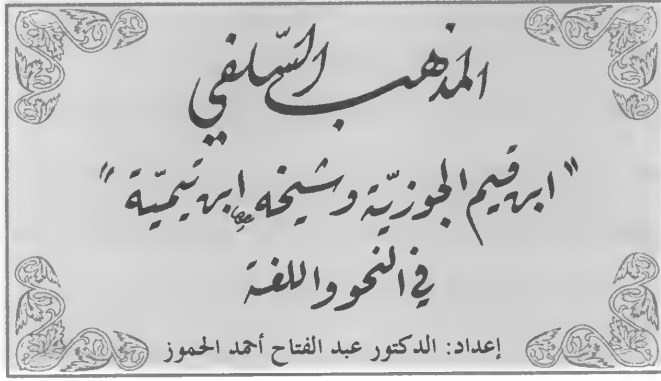 المذهب السّلفي
"ابن قيم الجوزيّة وشيخه ابن تيميّة"
في النحو واللغة
إعداد: الدكتور عبد الفتاح أحمد الحموز